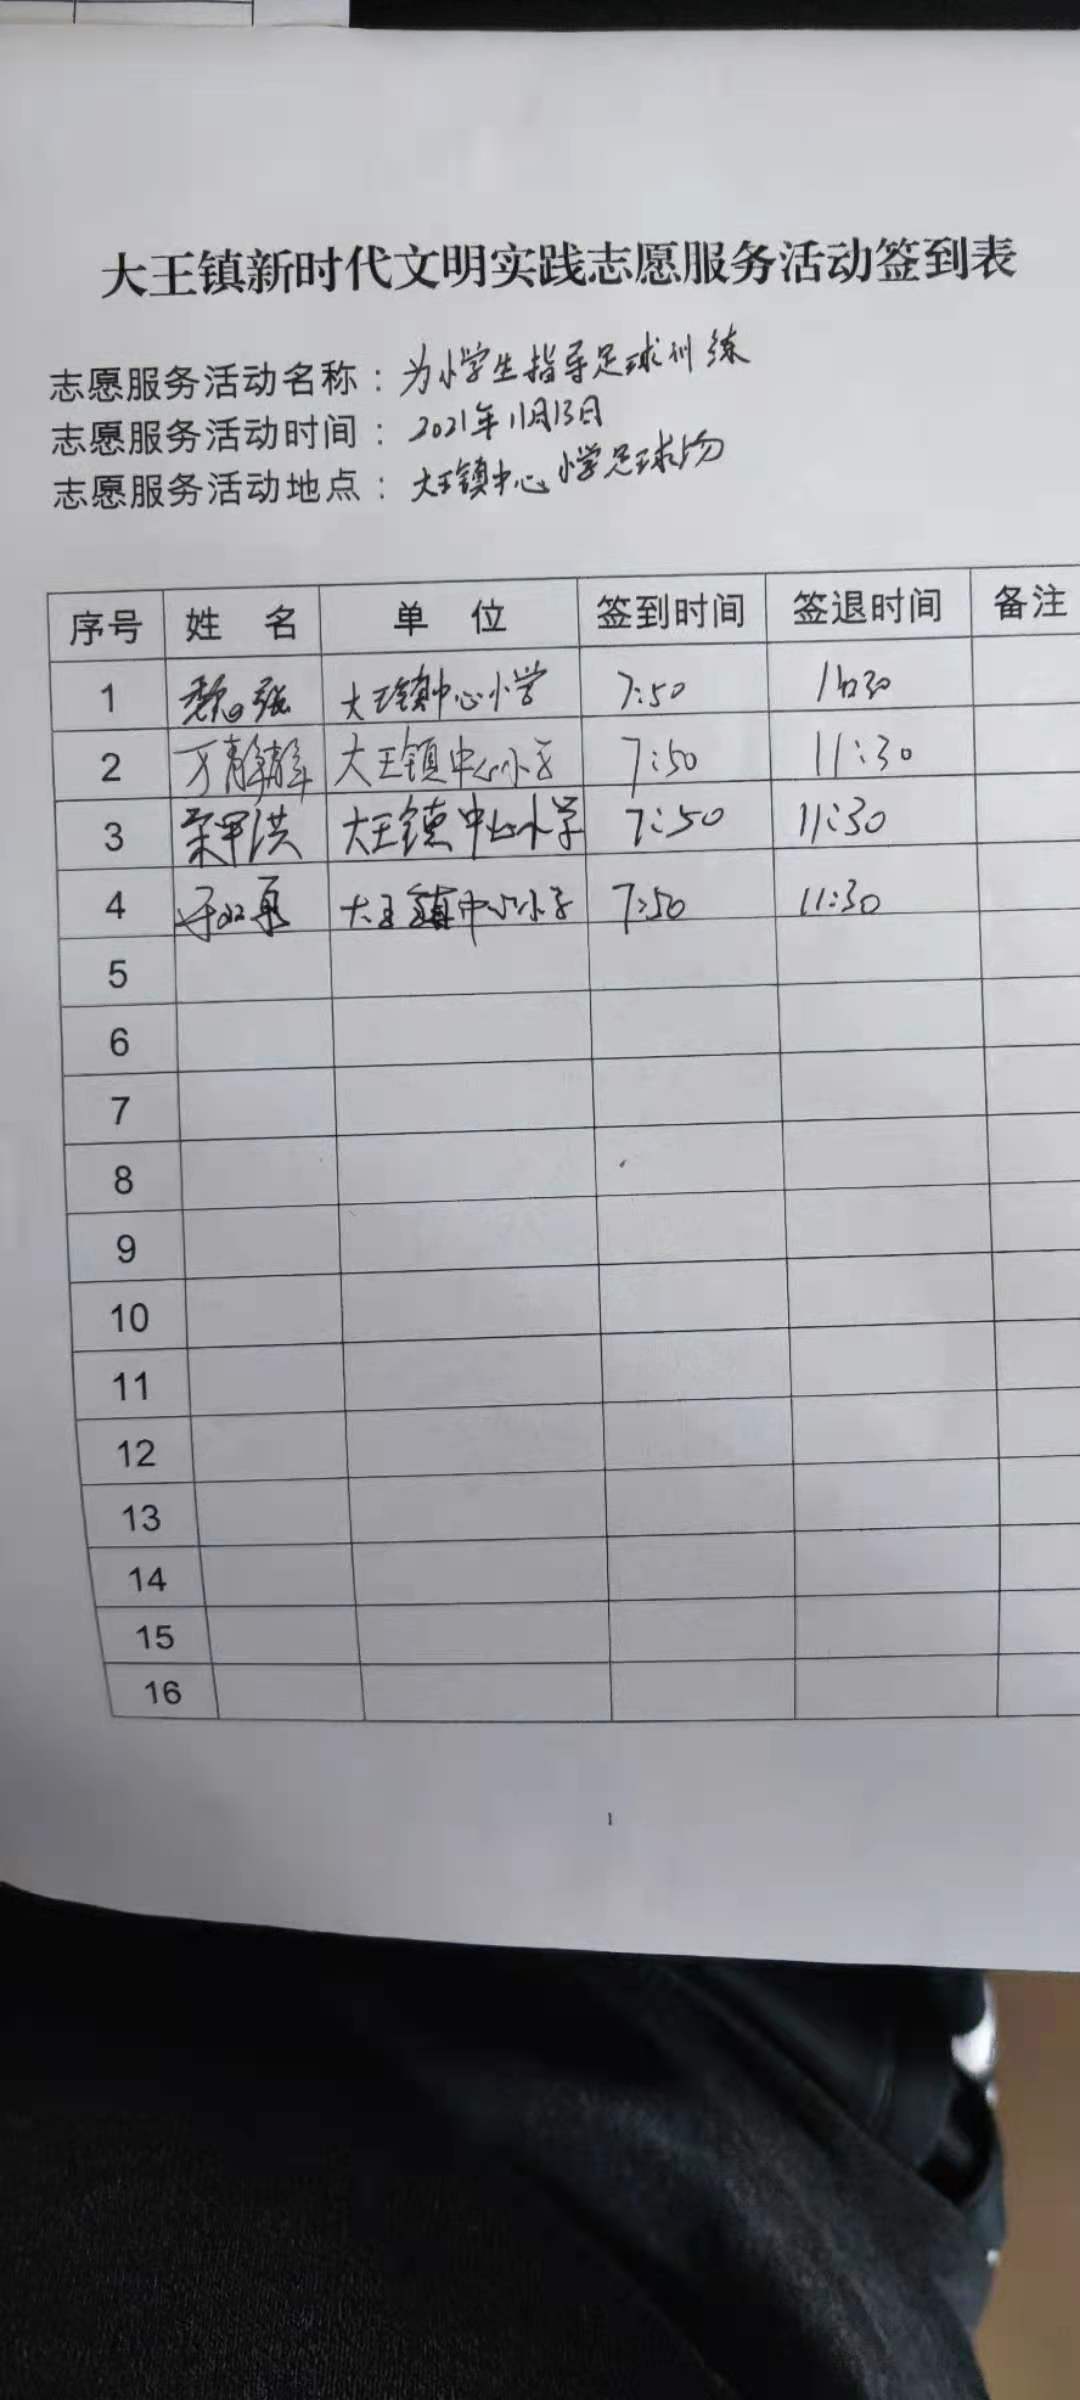 大王镇新时代文明实践志愿服务活动签到表
志愿服务活动名称：为小学生指导足球训练
志愿服务活动时间：2021年11月13日
志愿服务活动地点：大王镇中心小学足球场
序号 姓 名 单 位 签到时间 签退时间 备注
1 大王镇中心小学 7:50 11:30
2 万静静 大王镇中心小学 7:50 11:30
3 大王镇中心小学 7:50 11:30
4 大王镇中心小学 7:50 11:30
5
6
7
8
9
10
11
12
13
14
15
16
1